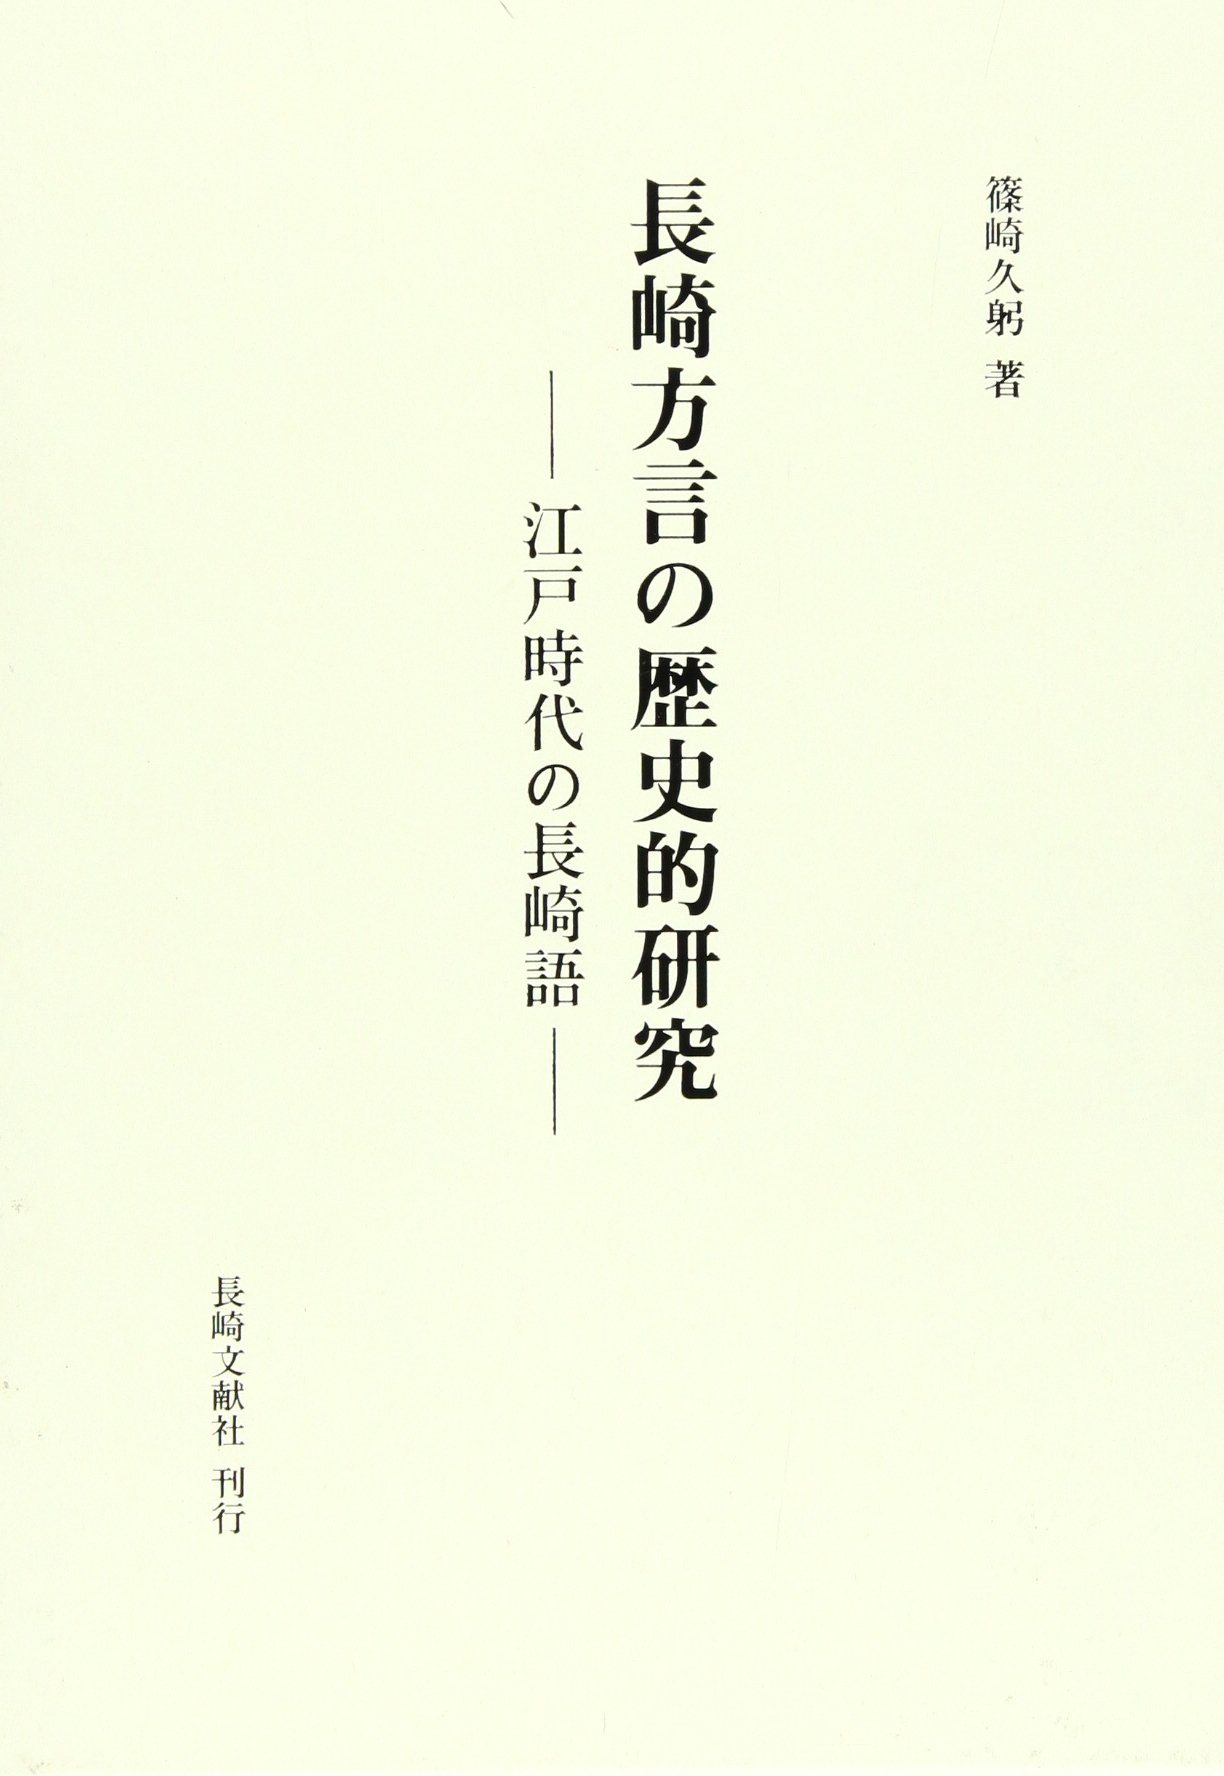 篠崎久躬 著
長崎方言の歴史的研究
――江戸時代の長崎語――
長崎文献社 刊行